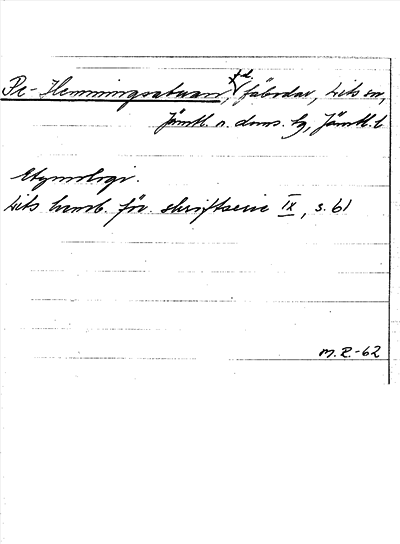 Pe-Hemmingsstuan, f.d. fäbodar, Lits sn,
Jämtl. n. doms. tg, Jämtl. l.
Etymologi.
Lits hemb. för. skriftserie IX, s. 61
M.R.-62